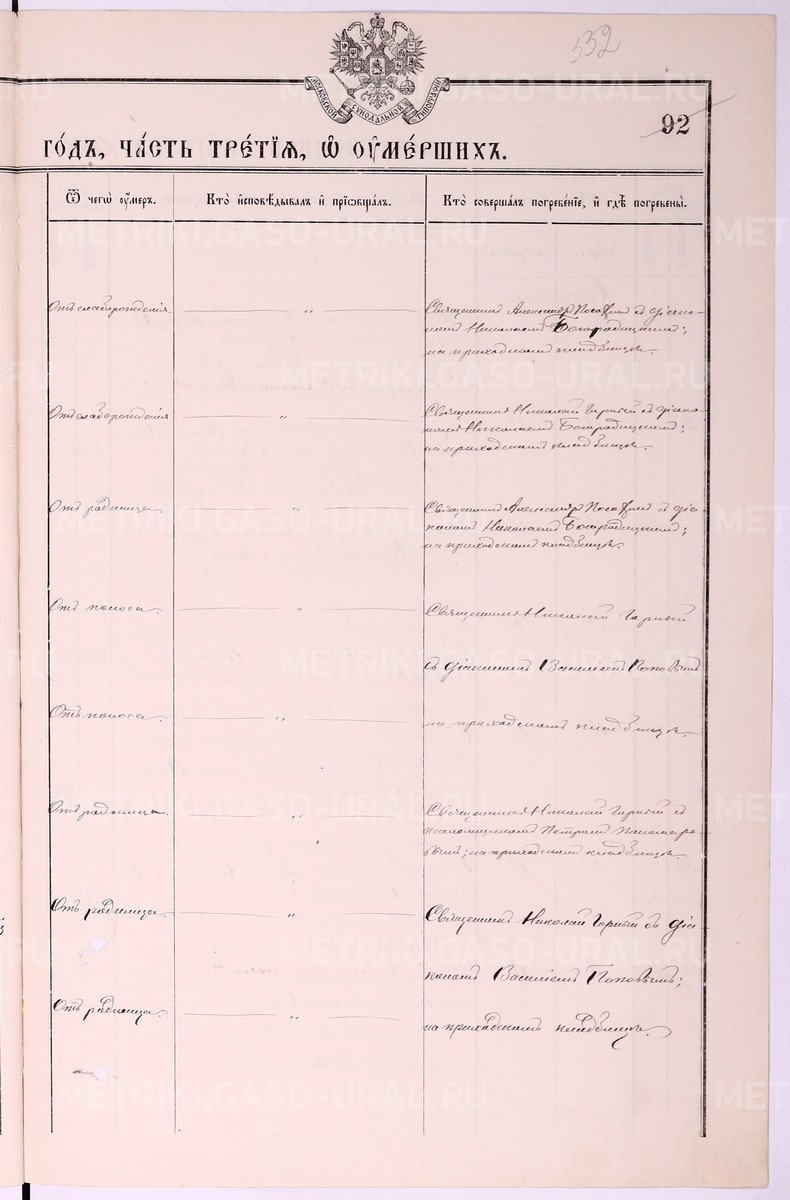 532
МОСКОВСКОЙ СѴНОДАЛЬНОЙ ТИПОГРАФІИ
92
ГО́ДЪ, ЧА́СТЬ ТРЕ́ТІѦ, Ѡ҆ ОУ҆МЕ́РШИХЪ.
Ѿ чегѡ̀ оу҆́меръ.
Кто̀ и҆сповѣ́дывалъ и҆ приѻбща́лъ.
Кто̀ соверша́лъ погребе́нїе, и҆ гдѣ̀ погребены̀.
Отъ слаборожденія. — „ — Священникъ Александръ с діако-
номъ Николаемъ Богородицкимъ;
на приходскомъ кладбищѣ.
Отъ слаборожденія — „ — Священникъ Николай Гарный съ діако-
номъ Николаемъ Богородицкимъ;
на приходскомъ кладбищѣ.
Отъ родимца. — „ — Священникъ Александръ с діа-
кономъ Николаемъ Богородицкимъ;
на приходскомъ кладбищѣ.
Отъ поноса. — „ — Священникъ Николай Гарный
съ діакономъ Василіемъ Поповымъ
Отъ поноса. — „ — на приходскомъ кладбищѣ.
Отъ родимца. — „ — Священникъ Николай Гарный съ
псаломщикомъ Петромъ Пономаре-
вымъ; на приходскомъ кладбищѣ.
Отъ родимца. — „ — Священникъ Николай Гарный съ діа-
кономъ Василіемъ Поповымъ;
Отъ родимца. — „ — на приходскомъ кладбищѣ.
METRIKI.GASO-URAL.RU